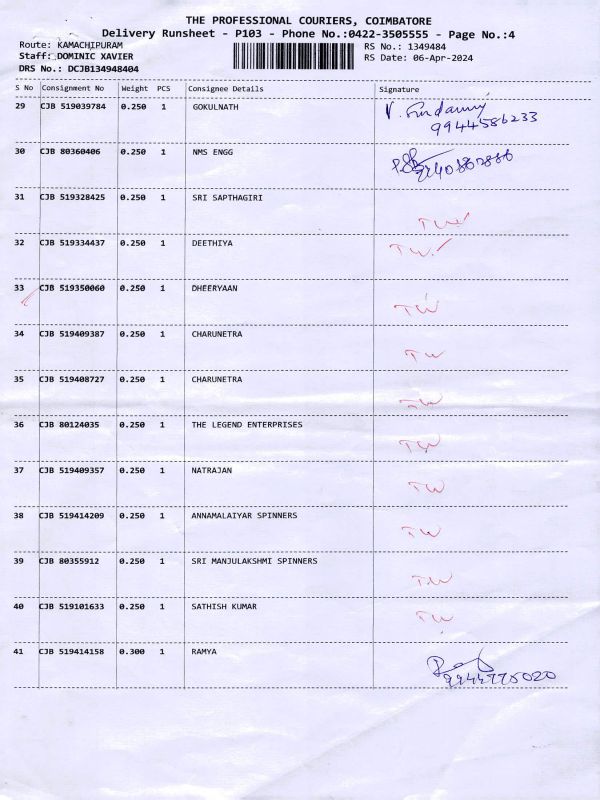 THE PROFESSIONAL COURIERS, COIMBATORE
Delivery Runsheet - P103 - Phone No.:0422-3505555 - Page No.:4
Route: KAMACHIPURAM RS No.: 1349484
Staff: DOMINIC XAVIER RS Date: 06-Apr-2024
DRS No.: DCJB134948404
S No Consignment No Weight PCS Consignee Details Signature
29 CJB 519039784 0.250 1 GOKULNATH
9944586233
30 CJB 80360406 0.250 1 NMS ENGG
31 CJB 519328425 0.250 1 SRI SAPTHAGIRI
TW
32 CJB 519334437 0.250 1 DEETHIYA TW
33 CJB 519350060 0.250 1 DHEERYAAN
TW
34 CJB 519409387 0.250 1 CHARUNETRA
TW
35 CJB 519408727 0.250 1 CHARUNETRA
TW
36 CJB 80124035 0.250 1 THE LEGEND ENTERPRISES
TW
37 CJB 519409357 0.250 1 NATRAJAN
TW
38 CJB 519414209 0.250 1 ANNAMALAIYAR SPINNERS
TW
39 CJB 80355912 0.250 1 SRI MANJULAKSHMI SPINNERS
TW
40 CJB 519101633 0.250 1 SATHISH KUMAR
TW
41 CJB 519414158 0.300 1 RAMYA